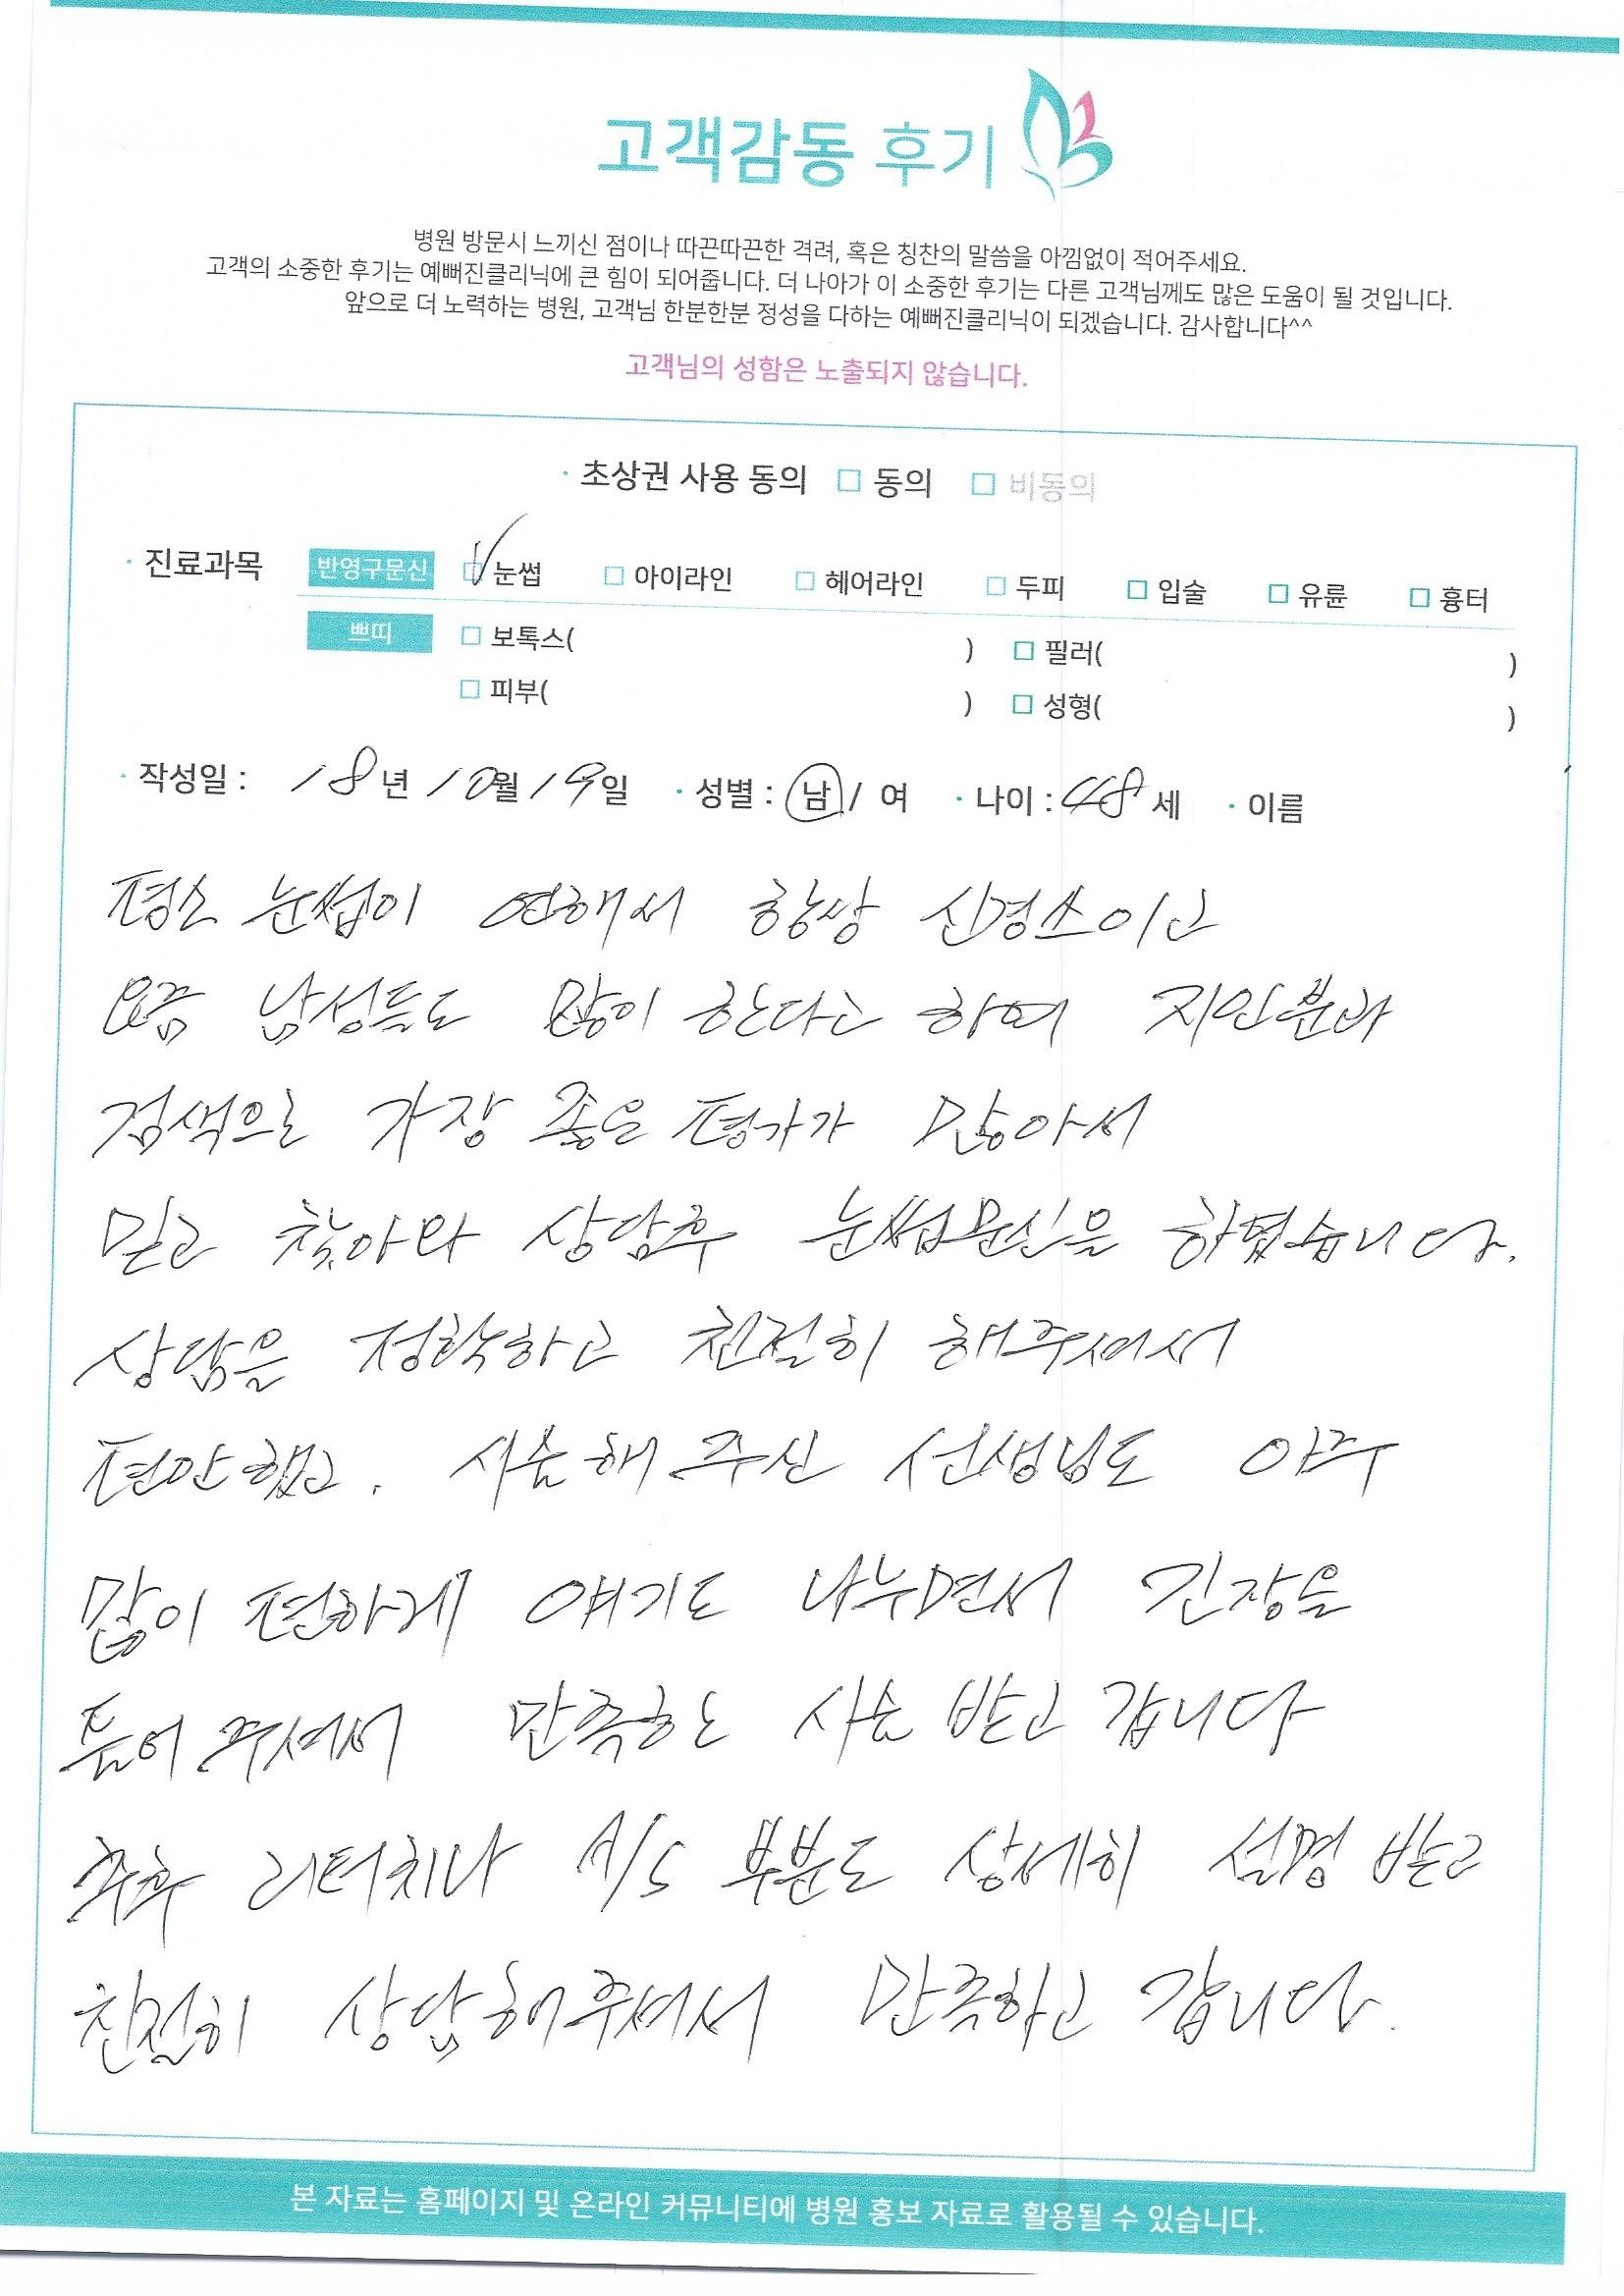 고객감동 후기
병원 방문시 느끼신 점이나 따끈따끈한 격려, 혹은 칭찬의 말씀을 아낌없이 적어주세요.
고객의 소중한 후기는 예뻐진클리닉에 큰 힘이 되어줍니다. 더 나아가 이 소중한 후기는 다른 고객님께도 많은 도움이 될 것입니다.
앞으로 더 노력하는 병원, 고객님 한분한분 정성을 다하는 예뻐진클리닉이 되겠습니다. 감사합니다^^
고객님의 성함은 노출되지 않습니다.
· 초상권 사용 동의 □ 동의 □ 비동의
· 진료과목 반영구문신 ☑ 눈썹 □ 아이라인 □ 헤어라인 □ 두피 □ 입술 □ 유륜 □ 흉터
쁘띠 □ 보톡스( ) □ 필러( )
□ 피부( ) □ 성형( )
· 작성일 : 18년 10월 19일 · 성별 : 남 / 여 · 나이 : 48 세 · 이름
평소 눈썹이 연해서 항상 신경쓰이고
요즘 남성들도 많이 한다고 하여 지인분과
검색으로 가장 좋은 평가가 많아서
믿고 찾아와 상담후 눈썹문신을 하였습니다.
상담을 정확하고 친절히 해주셔서
편안했고. 시술해 주신 선생님도 아주
많이 편하게 얘기도 나누면서 긴장을
풀어 주셔서 만족한 시술 받고 갑니다
추후 리터치나 A/S 부분도 상세히 설명 받고
친절히 상담해주셔서 만족하고 갑니다.
본 자료는 홈페이지 및 온라인 커뮤니티에 병원 홍보 자료로 활용될 수 있습니다.